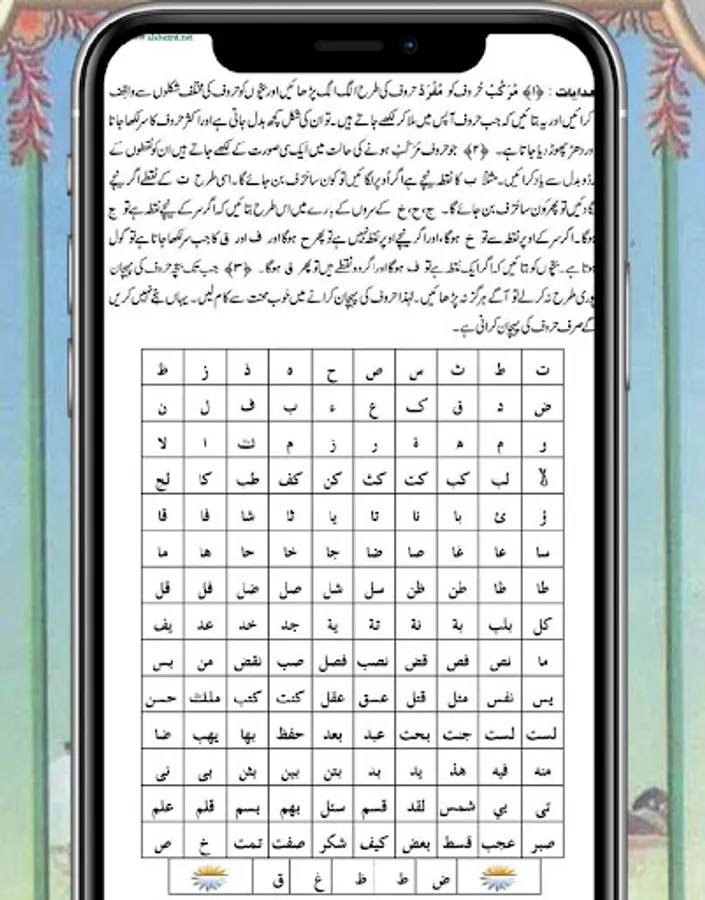 www.alahazrat.net
ھدایات : ﴿۱﴾ مُرَکَّبْ حُروف کو مُفْرَدْ حروف کی طرح الگ الگ پڑھائیں اور بچّوں کو حروف کی مختلف شکلوں سے واقِف
کرائیں اور یہ بتائیں کہ جب حروف آپس میں ملا کر لکھے جاتے ہیں۔تو ان کی شکل کچھ بدل جاتی ہے اور اکثر حروف کا سر لکھا جاتا
اور دھڑ چھوڑ دیا جاتا ہے۔ ﴿۲﴾ جو حروف مُرَکَّبْ ہونے کی حالت میں ایک سی صورت کے لکھے جاتے ہیں ان کو نقطوں کے
ردّوبدل سے یاد کرائیں۔مثلاً ب کا نقطہ نیچے ہے اگر اُوپر لگائیں تو کون سا حَرْف بن جائے گا۔اسی طرح ت کے نقطے اگر نیچے
لگا دئیں تو پھر کون سا حَرْف بن جائے گا۔ ج،ح،خ کے سروں کے بارے میں اس طرح بتائیں کہ اگر سر کے نیچے نقطہ ہے تو ج
ہوگا۔اگر سر کے اوپر نقطہ ہے تو خ ہوگا،اور اگر نیچے اوپر نقطہ نہیں ہے تو پھر ح ہوگا اور ف اور ق کا جب سر لکھا جاتا ہے تو گول
ہوتا ہے۔بچّوں کو بتائیں کہ اگر ایک نقطہ ہے تو ف ہوگا اور اگر دو نقطے ہیں تو پھر ق ہوگا۔ ﴿۳﴾ جب تک بچّہ حروف کی پہچان
پوری طرح نہ کر لے تو آگے ہرگز نہ پڑھائیں۔لہٰذا حروف کی پہچان کرانے میں خوب محنت سے کام لیں۔یہاں ہجے نہیں کریں
گے صرف حروف کی پہچان کرانی ہے۔
ت ط ث س ص ح ہ ذ ز ظ
ض د ق ک ع ء ب ف ل ن
و م ھ ة ر ز م ث ا لا
لب کب کت کث کن کف طب کا لج
ؤ ئ با نا تا یا ثا شا فا قا
سا عا غا صا ضا جا خا حا ھا ما
طا ظا طن ظن سل شل صل ضل فل قل
کل بلب بة نة تة یة جد خد عد یف
ما نص فص قض نصب فصل صب نقض من بس
یس نفس مثل قتل عسق عقل کنت کتب ملك حسن
لست لست جنت بحت عبد بعد حفظ بھا یھب ضا
منه فیه ھذ ید بد بتن بین بثن بی نی
تی یي شمس لقد قسم سئل بھم بسم قلم علم
صبر عجب قسط بعض کیف شکر صفت تمت خ ص
ض ط ظ غ ق